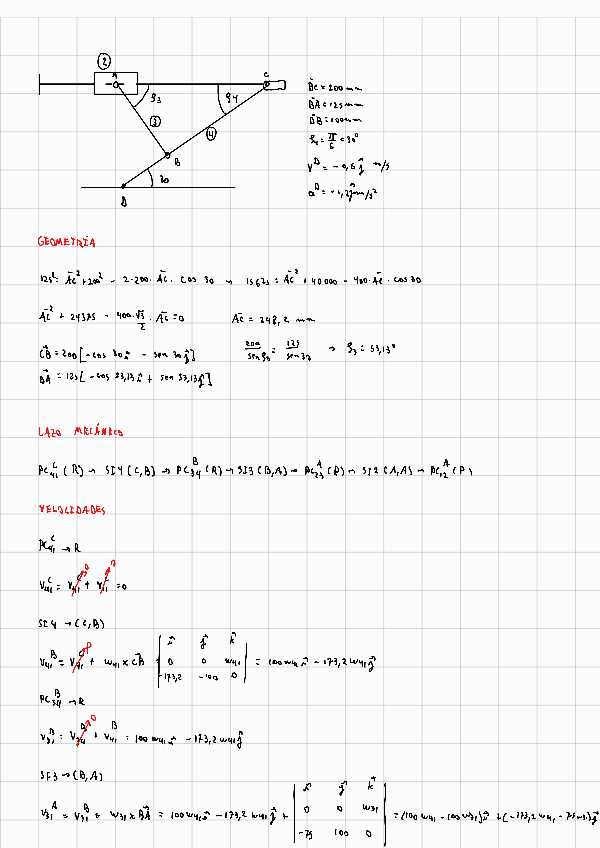 2
A
C
φ3
φ4
3
4
B
30
D
B̄C = 200 mm
B̄A = 125 mm
D̄B = 100 mm
φ4 = π/6 = 30°
v^D = -0,6 ĵ m/s
GEOMETRÍA
125² = ĀC² + 200² - 2·200·ĀC·cos 30 → 15625 = ĀC² + 40000 - 400·ĀC·cos 30
ĀC² + 24375 - 400·√3/2·ĀC = 0 ĀC = 248,2 mm
CB = 200 [-cos 30 î - sen 30 ĵ] 200/sen φ3 = 125/sen 30 → φ3 = 53,13°
BA = 125 [-cos 53,13 î + sen 53,13 ĵ]
LAZO MECÁNICO
PC41^C (R) → SI4 (C,B) → PC34^B (R) → SI3 (B,A) → PC23^A (R) → SI2 (A,A) → PC12^A (P)
VELOCIDADES
PC41^C → R
SI4 → (C,B)
î ĵ k̂
0 0 w41
-173,2 -100 0
= 100 w41 î - 173,2 w41 ĵ
PC34^B → R
= 100 w41 î - 173,2 w41 ĵ
SI3 → (B,A)
v31^A = v31^B + w31 x BA = 100 w41 î - 173,2 w41 ĵ +
î ĵ k̂
0 0 w31
-75 100 0
= (100 w41 - 100 w31) î + (-173,2 w41 - 75 w31) ĵ